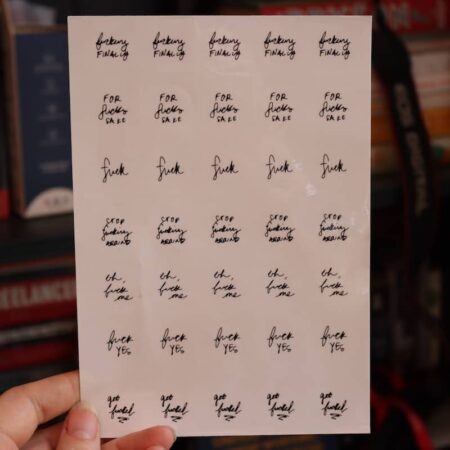 fucking fucking fucking fucking fucking
FINALLY FINALLY FINALLY FINALLY FINALLY
FOR FOR FOR FOR FOR
fuck's fuck's fuck's fuck's fuck's
SAKE SAKE SAKE SAKE SAKE
fuck fuck fuck fuck fuck
STOP STOP STOP STOP STOP
fucking fucking fucking fucking fucking
AROUND AROUND AROUND AROUND AROUND
oh, oh, oh, oh, oh,
fuck fuck fuck fuck fuck
me me me me me
fuck fuck fuck fuck fuck
YES YES YES YES YES
get get get get get
fucked. fucked. fucked. fucked. fucked.
REELANCE